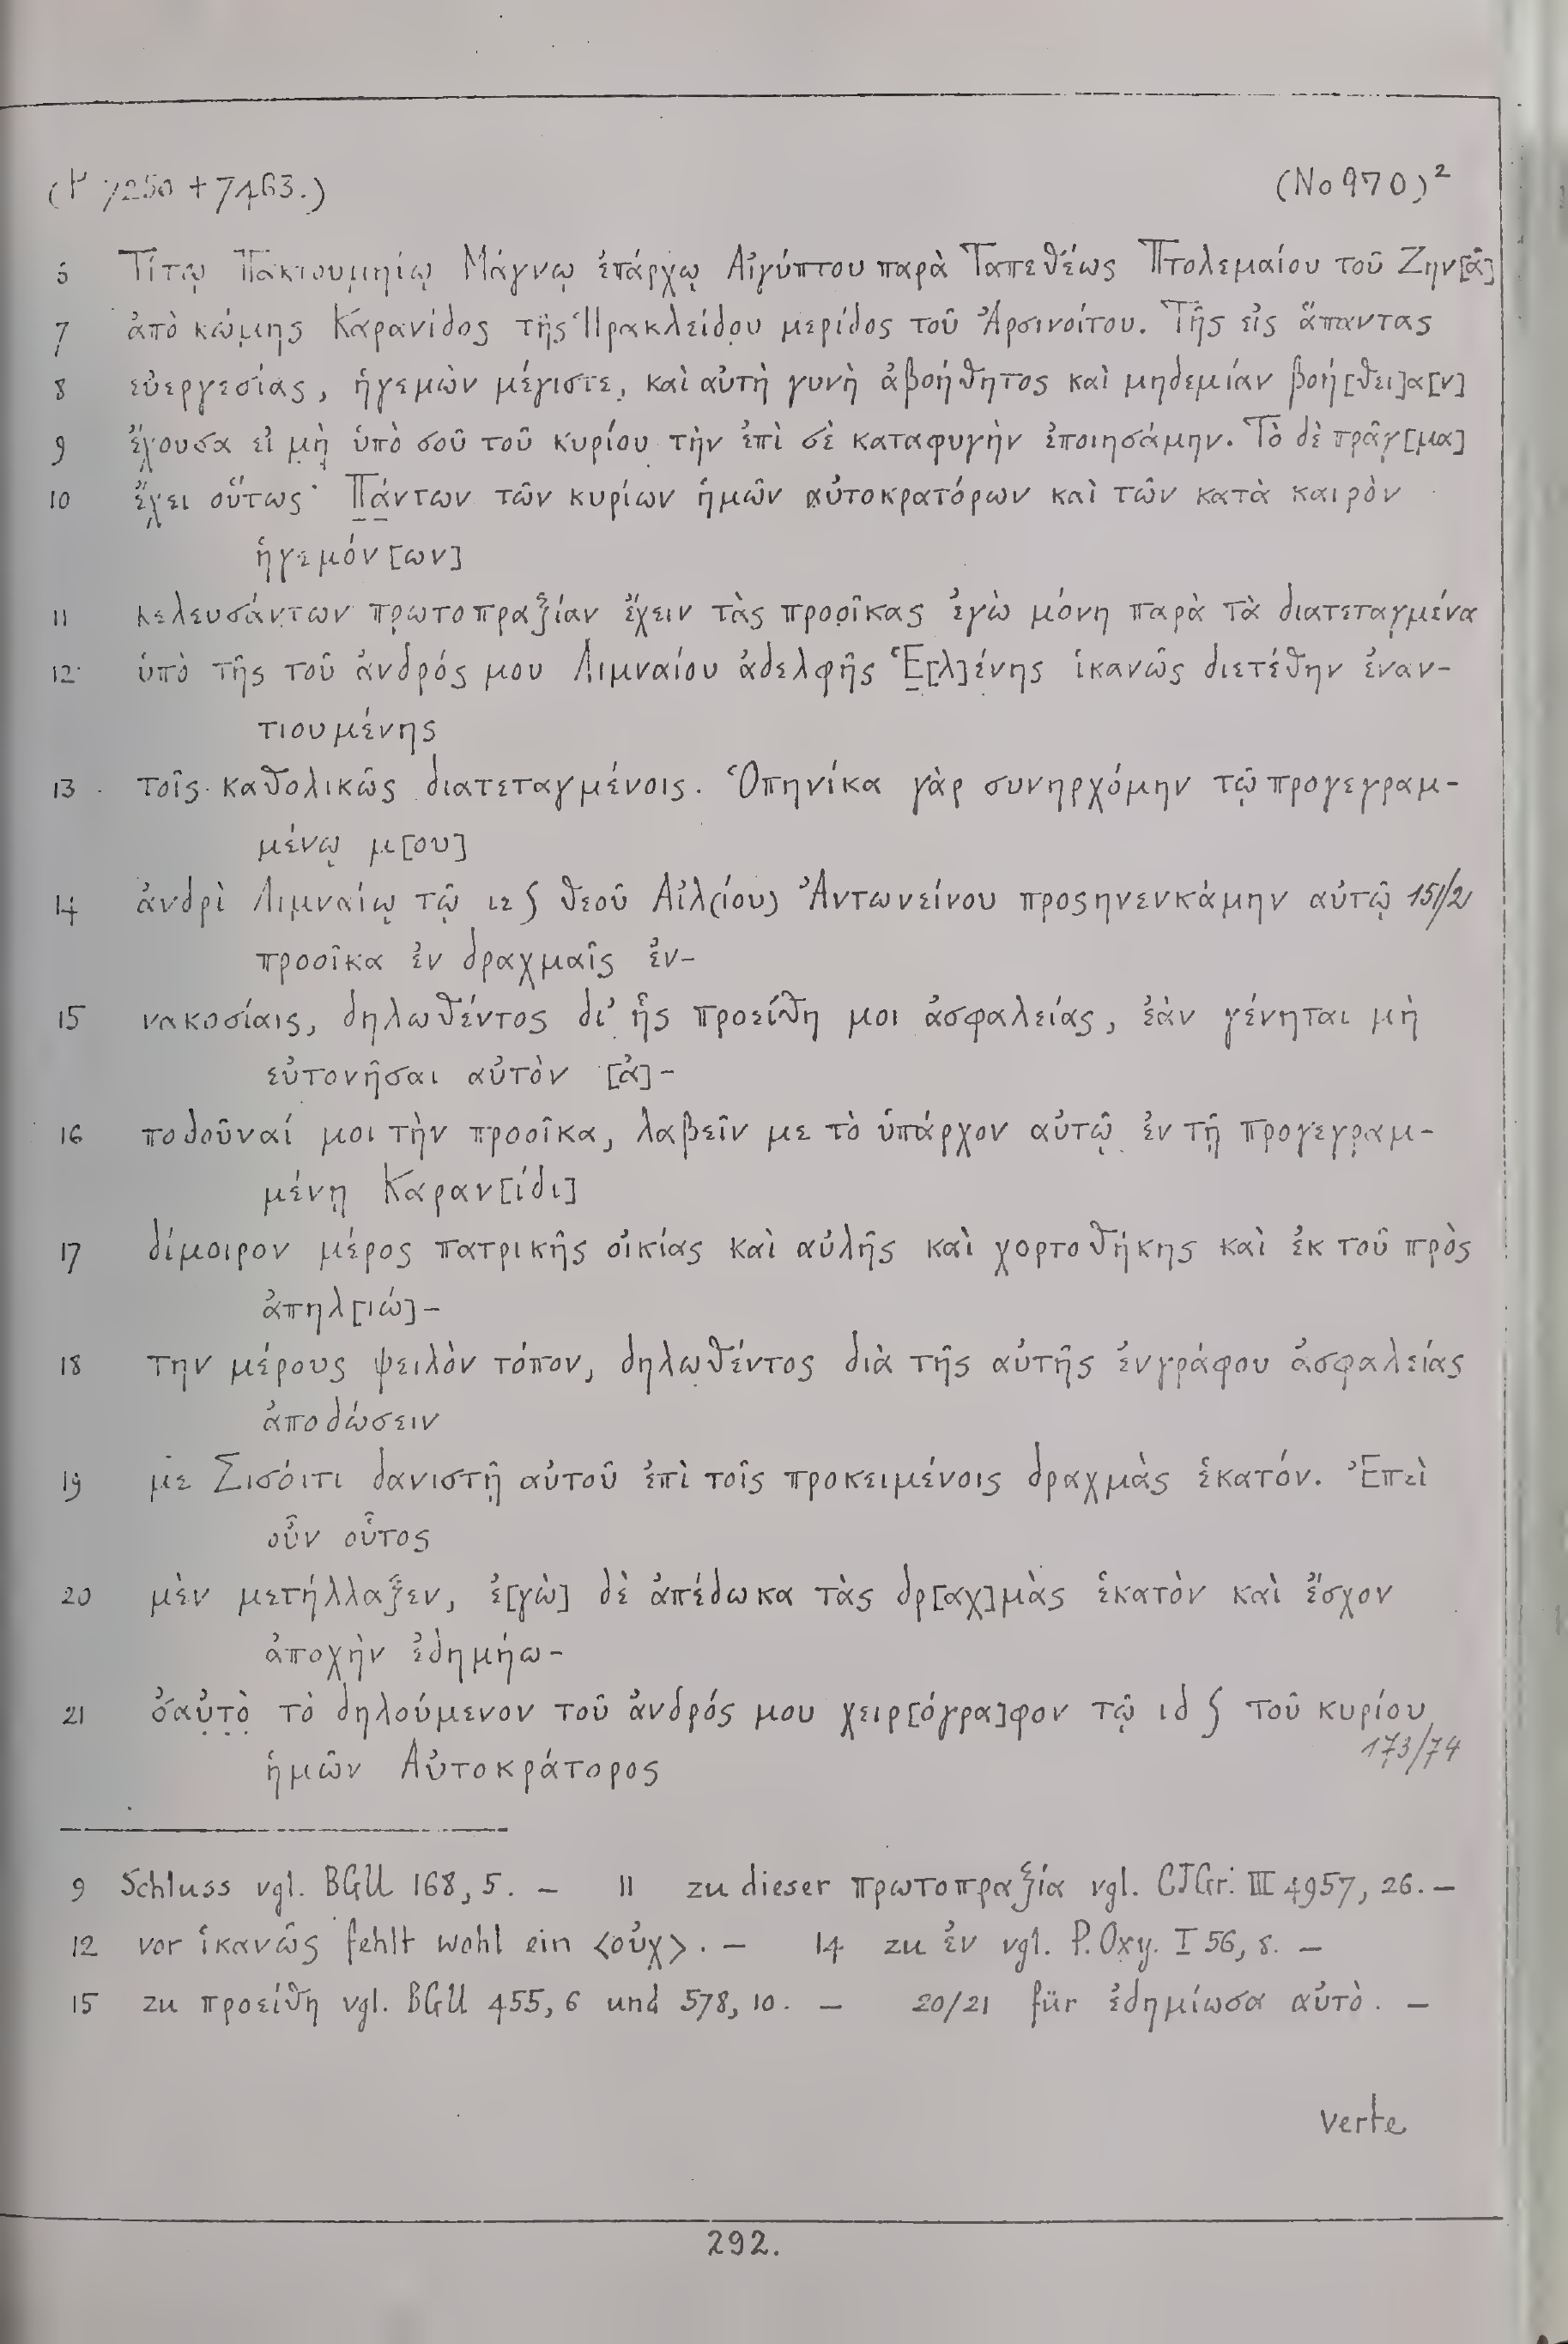 (P 7250 + 7463.)
(No 970)²
6 Τίτῳ Πακτουμηίῳ Μάγνῳ ἐπάρχῳ Αἰγύπτου παρὰ Ταπεθέως Πτολεμαίου τοῦ Ζην[ᾶ]
7 ἀπὸ κώμης Καρανίδος τῆς Ἡρακλείδου μερίδος τοῦ Ἀρσινοίτου. Τῆς εἰς ἅπαντας
8 εὐεργεσίας, ἡγεμὼν μέγιστε, καὶ αὐτὴ γυνὴ ἀβοήθητος καὶ μηδεμίαν βοή[θει]α[ν]
9 ἔχουσα εἰ μὴ ὑπὸ σοῦ τοῦ κυρίου τὴν ἐπὶ σὲ καταφυγὴν ἐποιησάμην. Τὸ δὲ πρᾶγ[μα]
10 ἔχει οὕτως· Πάντων τῶν κυρίων ἡμῶν αὐτοκρατόρων καὶ τῶν κατὰ καιρὸν
ἡγεμόν[ων]
11 κελευσάντων πρωτοπραξίαν ἔχειν τὰς προοῖκας ἐγὼ μόνη παρὰ τὰ διατεταγμένα
12 ὑπὸ τῆς τοῦ ἀνδρός μου Λιμναίου ἀδελφῆς Ἑ[λ]ένης ἱκανῶς διετέθην ἐναν-
τιουμένης
13 τοῖς καθολικῶς διατεταγμένοις. Ὁπηνίκα γὰρ συνηρχόμην τῷ προγεγραμ-
μένῳ μ[ου]
14 ἀνδρὶ Λιμναίῳ τῷ ιε ∫ θεοῦ Αἰλ(ίου) Ἀντωνείνου προςηνενκάμην αὐτῷ 151/2
προοῖκα ἐν δραχμαῖς ἐν-
15 νακοσίαις, δηλωθέντος δι' ἧς προείθη μοι ἀσφαλείας, ἐὰν γένηται μὴ
εὐτονῆσαι αὐτὸν [ἀ]-
16 ποδοῦναί μοι τὴν προοῖκα, λαβεῖν με τὸ ὑπάρχον αὐτῷ ἐν τῇ προγεγραμ-
μένῃ Καραν[ίδι]
17 δίμοιρον μέρος πατρικῆς οἰκίας καὶ αὐλῆς καὶ χορτοθήκης καὶ ἐκ τοῦ πρὸς
ἀπηλ[ιώ]-
18 την μέρους ψειλὸν τόπον, δηλωθέντος διὰ τῆς αὐτῆς ἐνγράφου ἀσφαλείας
ἀποδώσειν
19 με Σισόιτι δανιστῇ αὐτοῦ ἐπὶ τοῖς προκειμένοις δραχμὰς ἑκατόν. Ἐπεὶ
οὖν οὗτος
20 μὲν μετήλλαξεν, ἐ[γὼ] δὲ ἀπέδωκα τὰς δρ[αχ]μὰς ἑκατὸν καὶ ἔσχον
ἀποχὴν ἐδημήω-
21 σαὐτὸ τὸ δηλούμενον τοῦ ἀνδρός μου χειρ[όγρα]φον τῷ ιδ ∫ τοῦ κυρίου
ἡμῶν Αὐτοκράτορος 173/74
9 Schluss vgl. BGU 168, 5. – 11 zu dieser πρωτοπραξία vgl. CJGr. III 4957, 26. –
12 vor ἱκανῶς fehlt wohl ein <οὐχ>. – 14 zu ἐν vgl. P. Oxy. I 56, 8. –
15 zu προείθη vgl. BGU 455, 6 und 578, 10. – 20/21 für ἐδημίωσα αὐτὸ. –
verte
292.